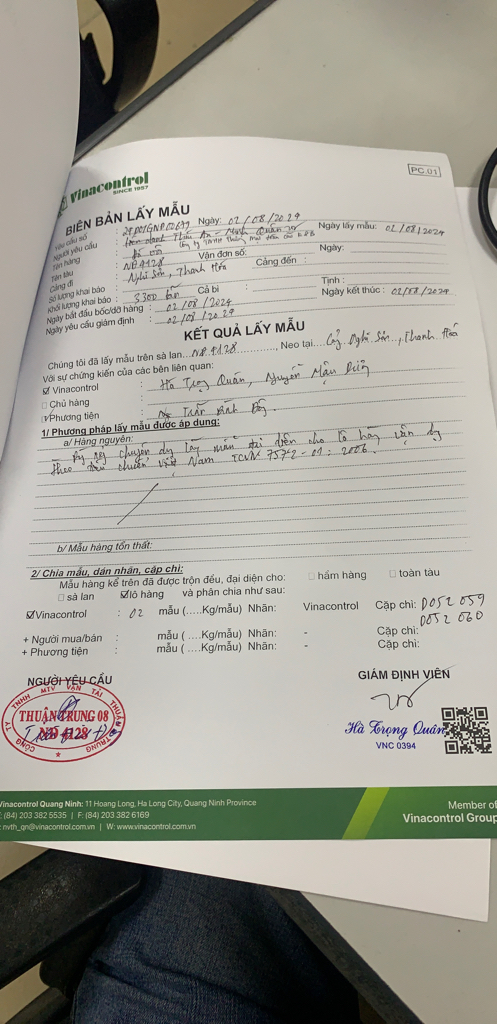 Vinacontrol
SINCE 1957
PC.01
BIÊN BẢN LẤY MẪU
Yêu cầu số : Ngày: 02/08/2024
Người yêu cầu : Ngày lấy mẫu: 02/08/2024
Tên hàng : Đá
Tên tàu : NĐ 4128 Vận đơn số: Ngày:
Cảng đi : Nghi Sơn, Thanh Hóa Cảng đến :
Số lượng khai báo :
Khối lượng khai báo : 3300 tấn Cả bì : Tịnh :
Ngày bắt đầu bốc/dỡ hàng : 02/08/2024 Ngày kết thúc : 02/08/2024
Ngày yêu cầu giám định : 02/08/2024
KẾT QUẢ LẤY MẪU
Chúng tôi đã lấy mẫu trên sà lan...NĐ 4128..., Neo tại...Cảng Nghi Sơn, Thanh Hóa
Với sự chứng kiến của các bên liên quan:
☑ Vinacontrol : Hà Trọng Quân, Nguyễn Mậu
☐ Chủ hàng :
☑ Phương tiện : Trần Đình
1/ Phương pháp lấy mẫu được áp dụng:
a/ Hàng nguyên: lấy mẫu đại diện cho lô hàng
theo tiêu chuẩn Việt Nam TCVN 7572-01:2006.
b/ Mẫu hàng tổn thất:
2/ Chia mẫu, dán nhãn, cặp chì:
Mẫu hàng kể trên đã được trộn đều, đại diện cho: ☐ hầm hàng ☐ toàn tàu
☐ sà lan ☑ lô hàng và phân chia như sau:
☑ Vinacontrol : 02 mẫu (.....Kg/mẫu) Nhãn: Vinacontrol Cặp chì: D052 059
D052 060
+ Người mua/bán : mẫu ( ....Kg/mẫu) Nhãn: - Cặp chì:
+ Phương tiện : mẫu ( ....Kg/mẫu) Nhãn: - Cặp chì:
NGƯỜI YÊU CẦU GIÁM ĐỊNH VIÊN
CÔNG TY TNHH MTV VẬN TẢI THUẬN TRUNG
THUẬN TRUNG 08
NĐ 4128
Hà Trọng Quân
VNC 0394
Vinacontrol Quang Ninh: 11 Hoang Long, Ha Long City, Quang Ninh Province
: (84) 203 382 5535 | F: (84) 203 382 6169
: nvth_qn@vinacontrol.com.vn | W: www.vinacontrol.com.vn
Member of
Vinacontrol Group